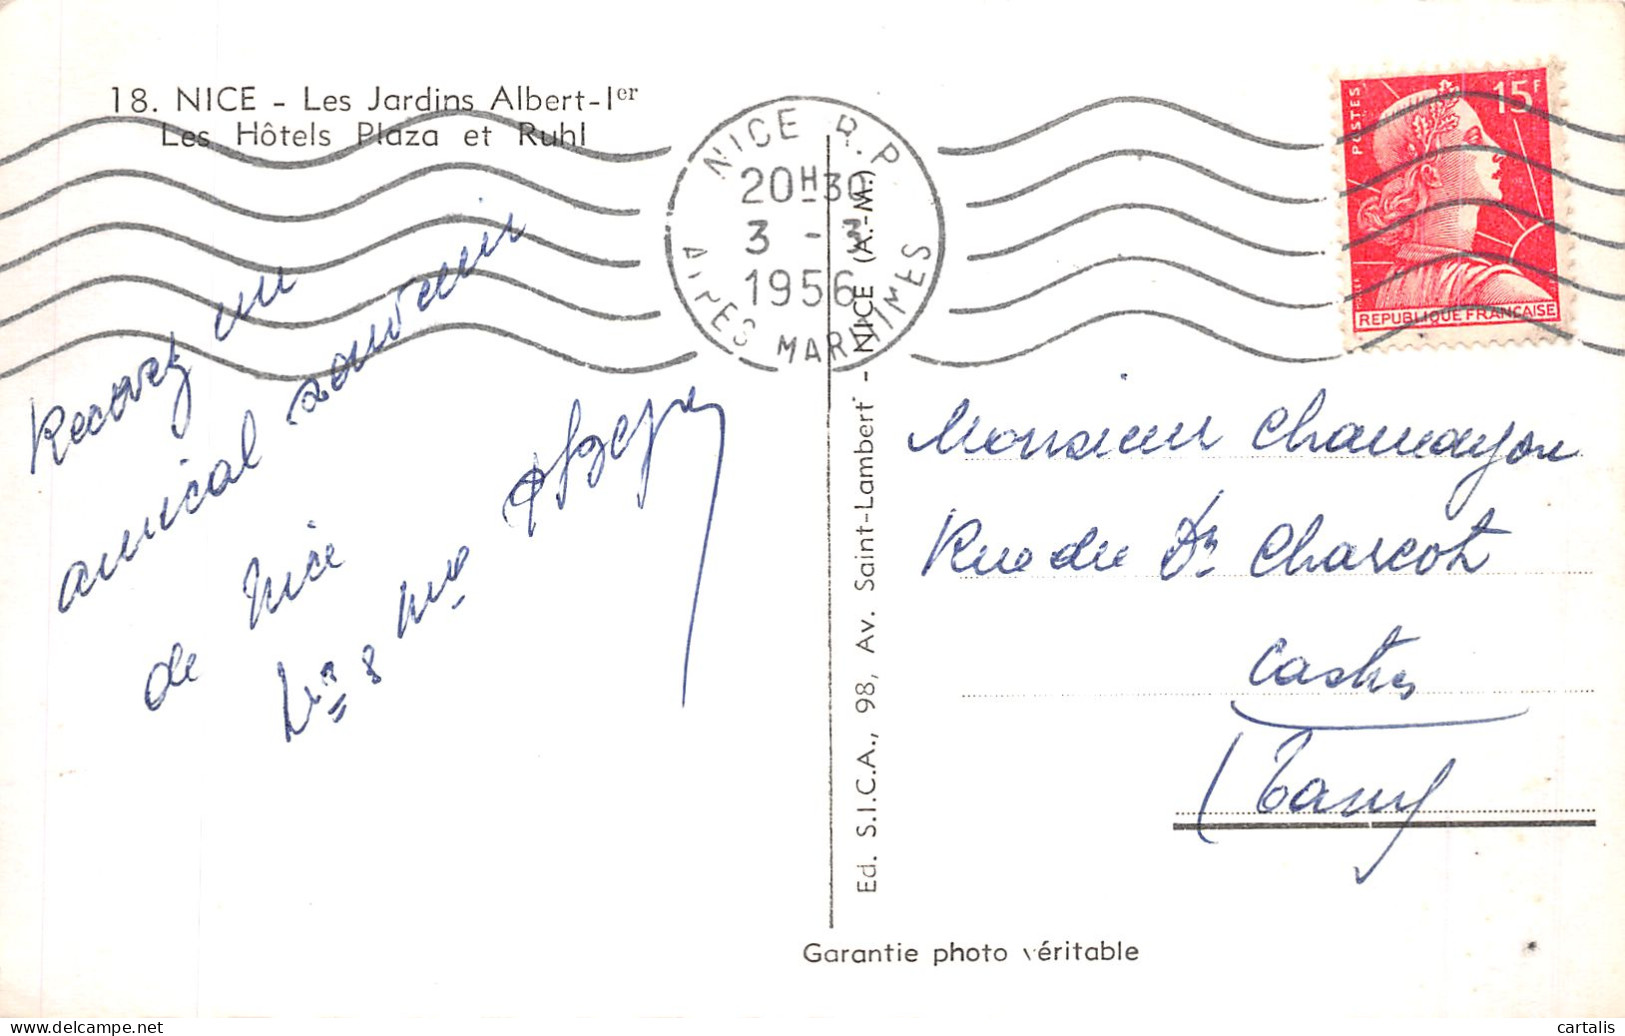 18. NICE - Les Jardins Albert-Ier
Les Hôtels Plaza et Ruhl
NICE R.P.
20H30
3 - 3
1956
ALPES MARITIMES
POSTES
15F
REPUBLIQUE FRANCAISE
Recevez un
amical souvenir
de Nice
Monsieur Chamayou
Rue du Dr Charcot
Castres
(Tarn)
Ed. S.I.C.A., 98, Av. Saint-Lambert - NICE (A.-M.)
Garantie photo véritable
cartalis